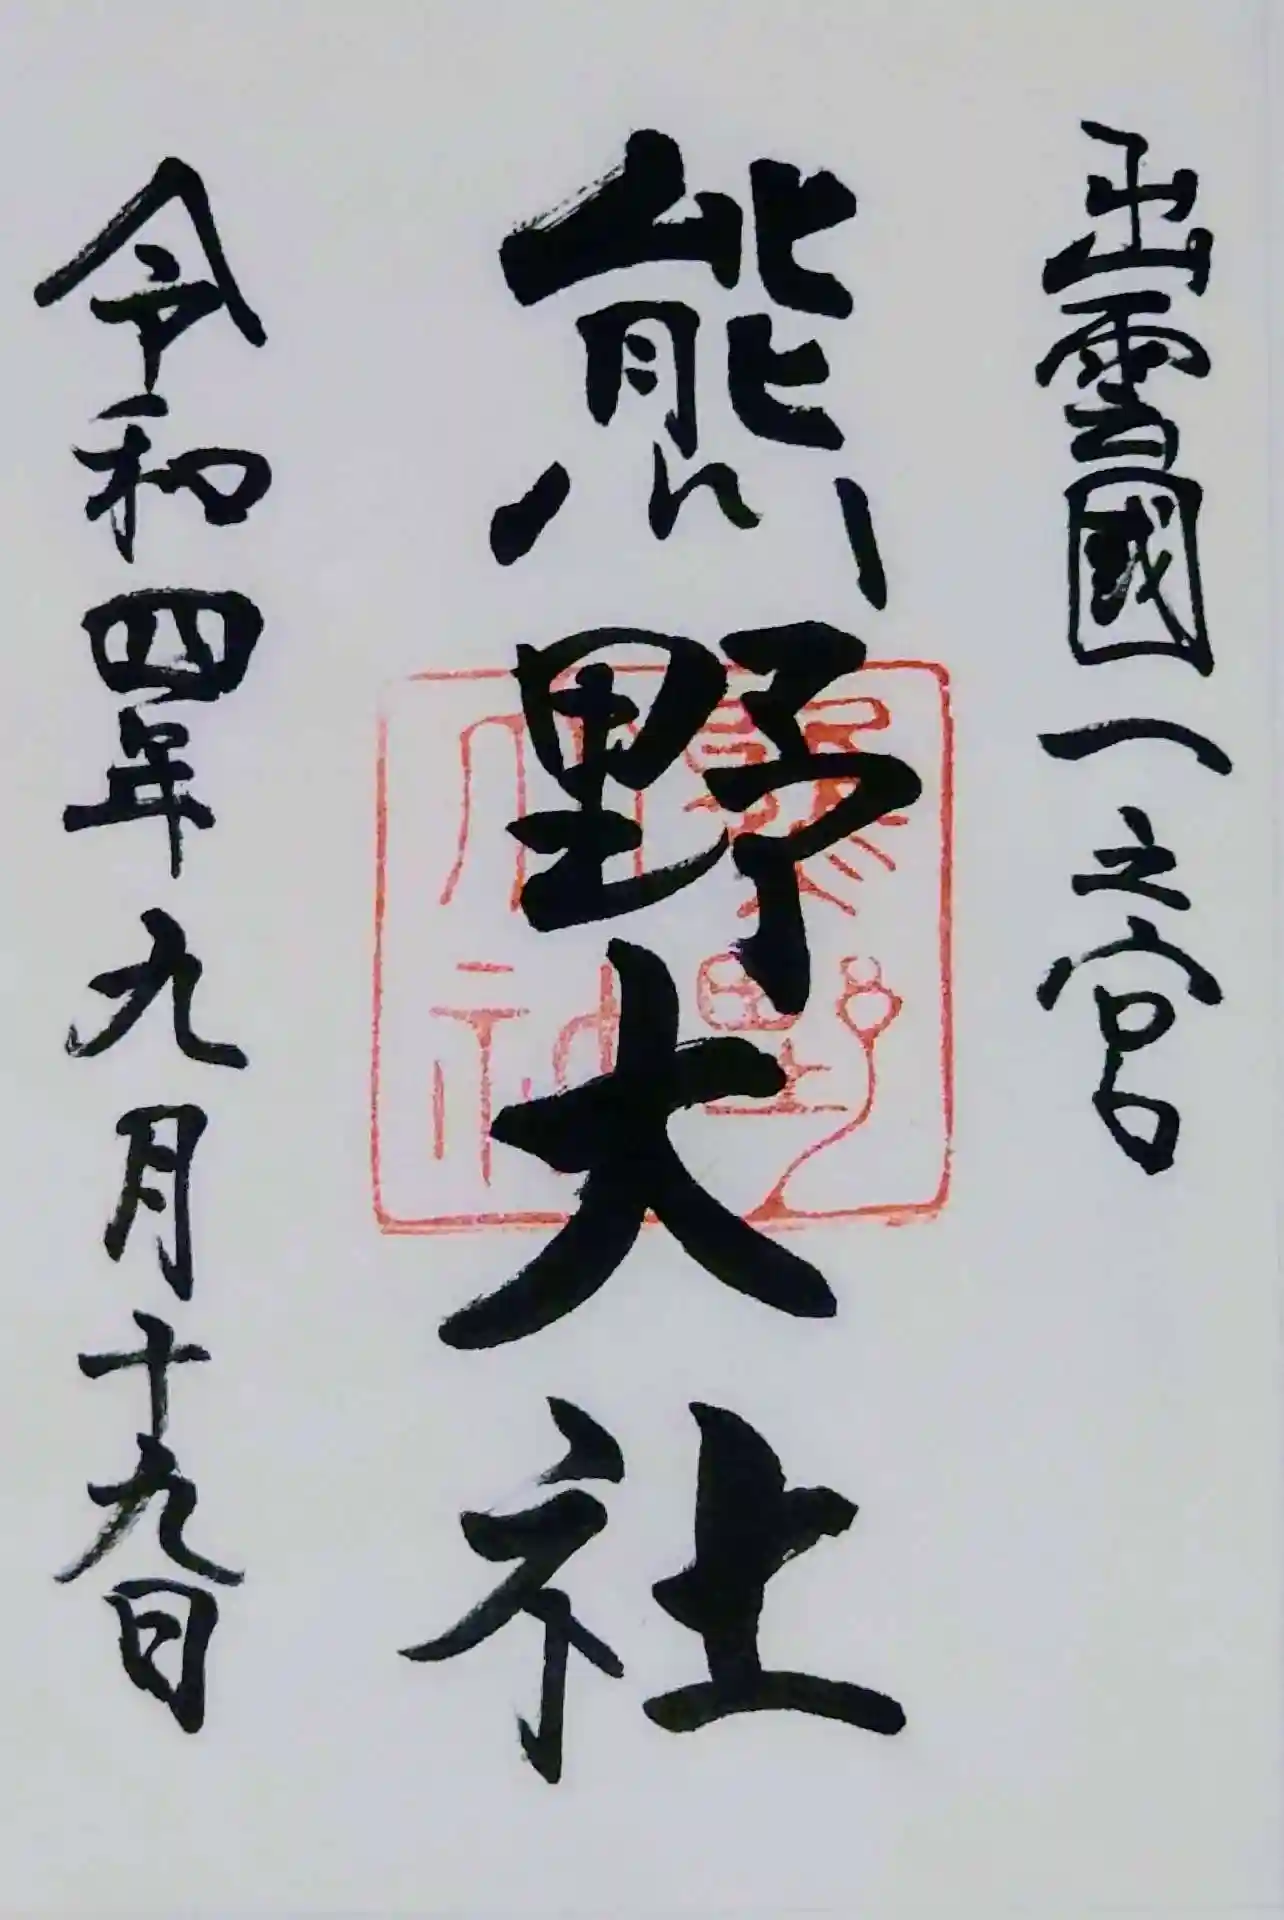 出雲國一之宮
熊野大社
熊野大社
令和四年九月十九日